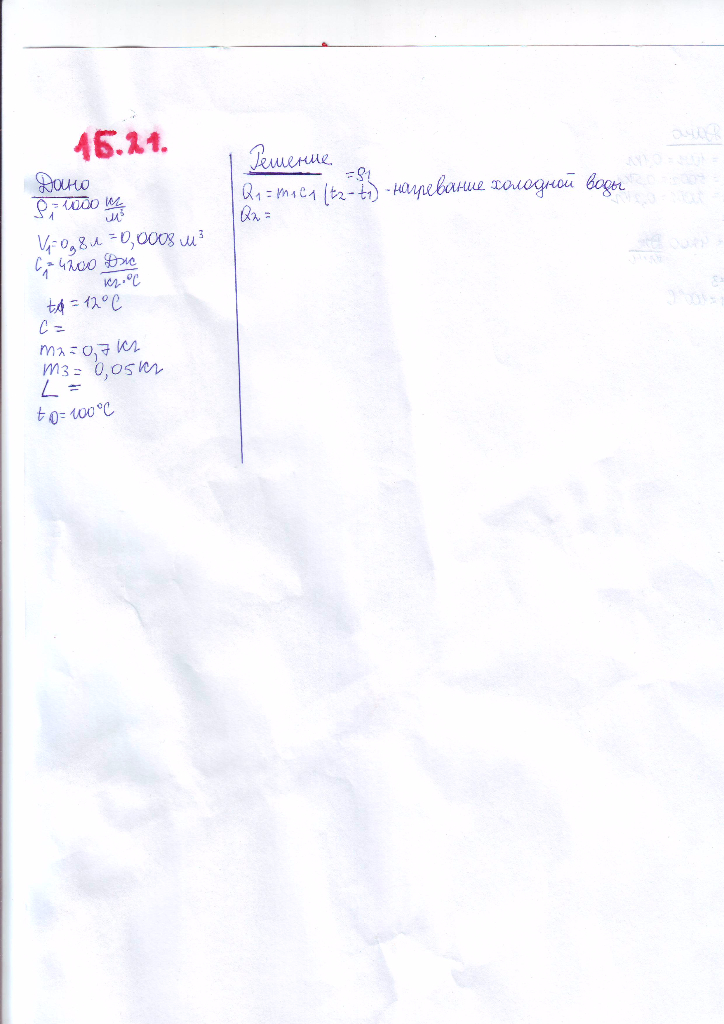 15.21.
Дано
ρ₁=1000 кг/м³
V₁=0,8л=0,0008м³
C₁=4200 Дж/кг·°C
t₁=12°C
C=
m₂=0,7кг
m₃= 0,05кг
L =
t₀=100°C
Решение
=ρ₁
Q₁=m₁c₁(t₂-t₁) -нагревание холодной воды
Q₂=